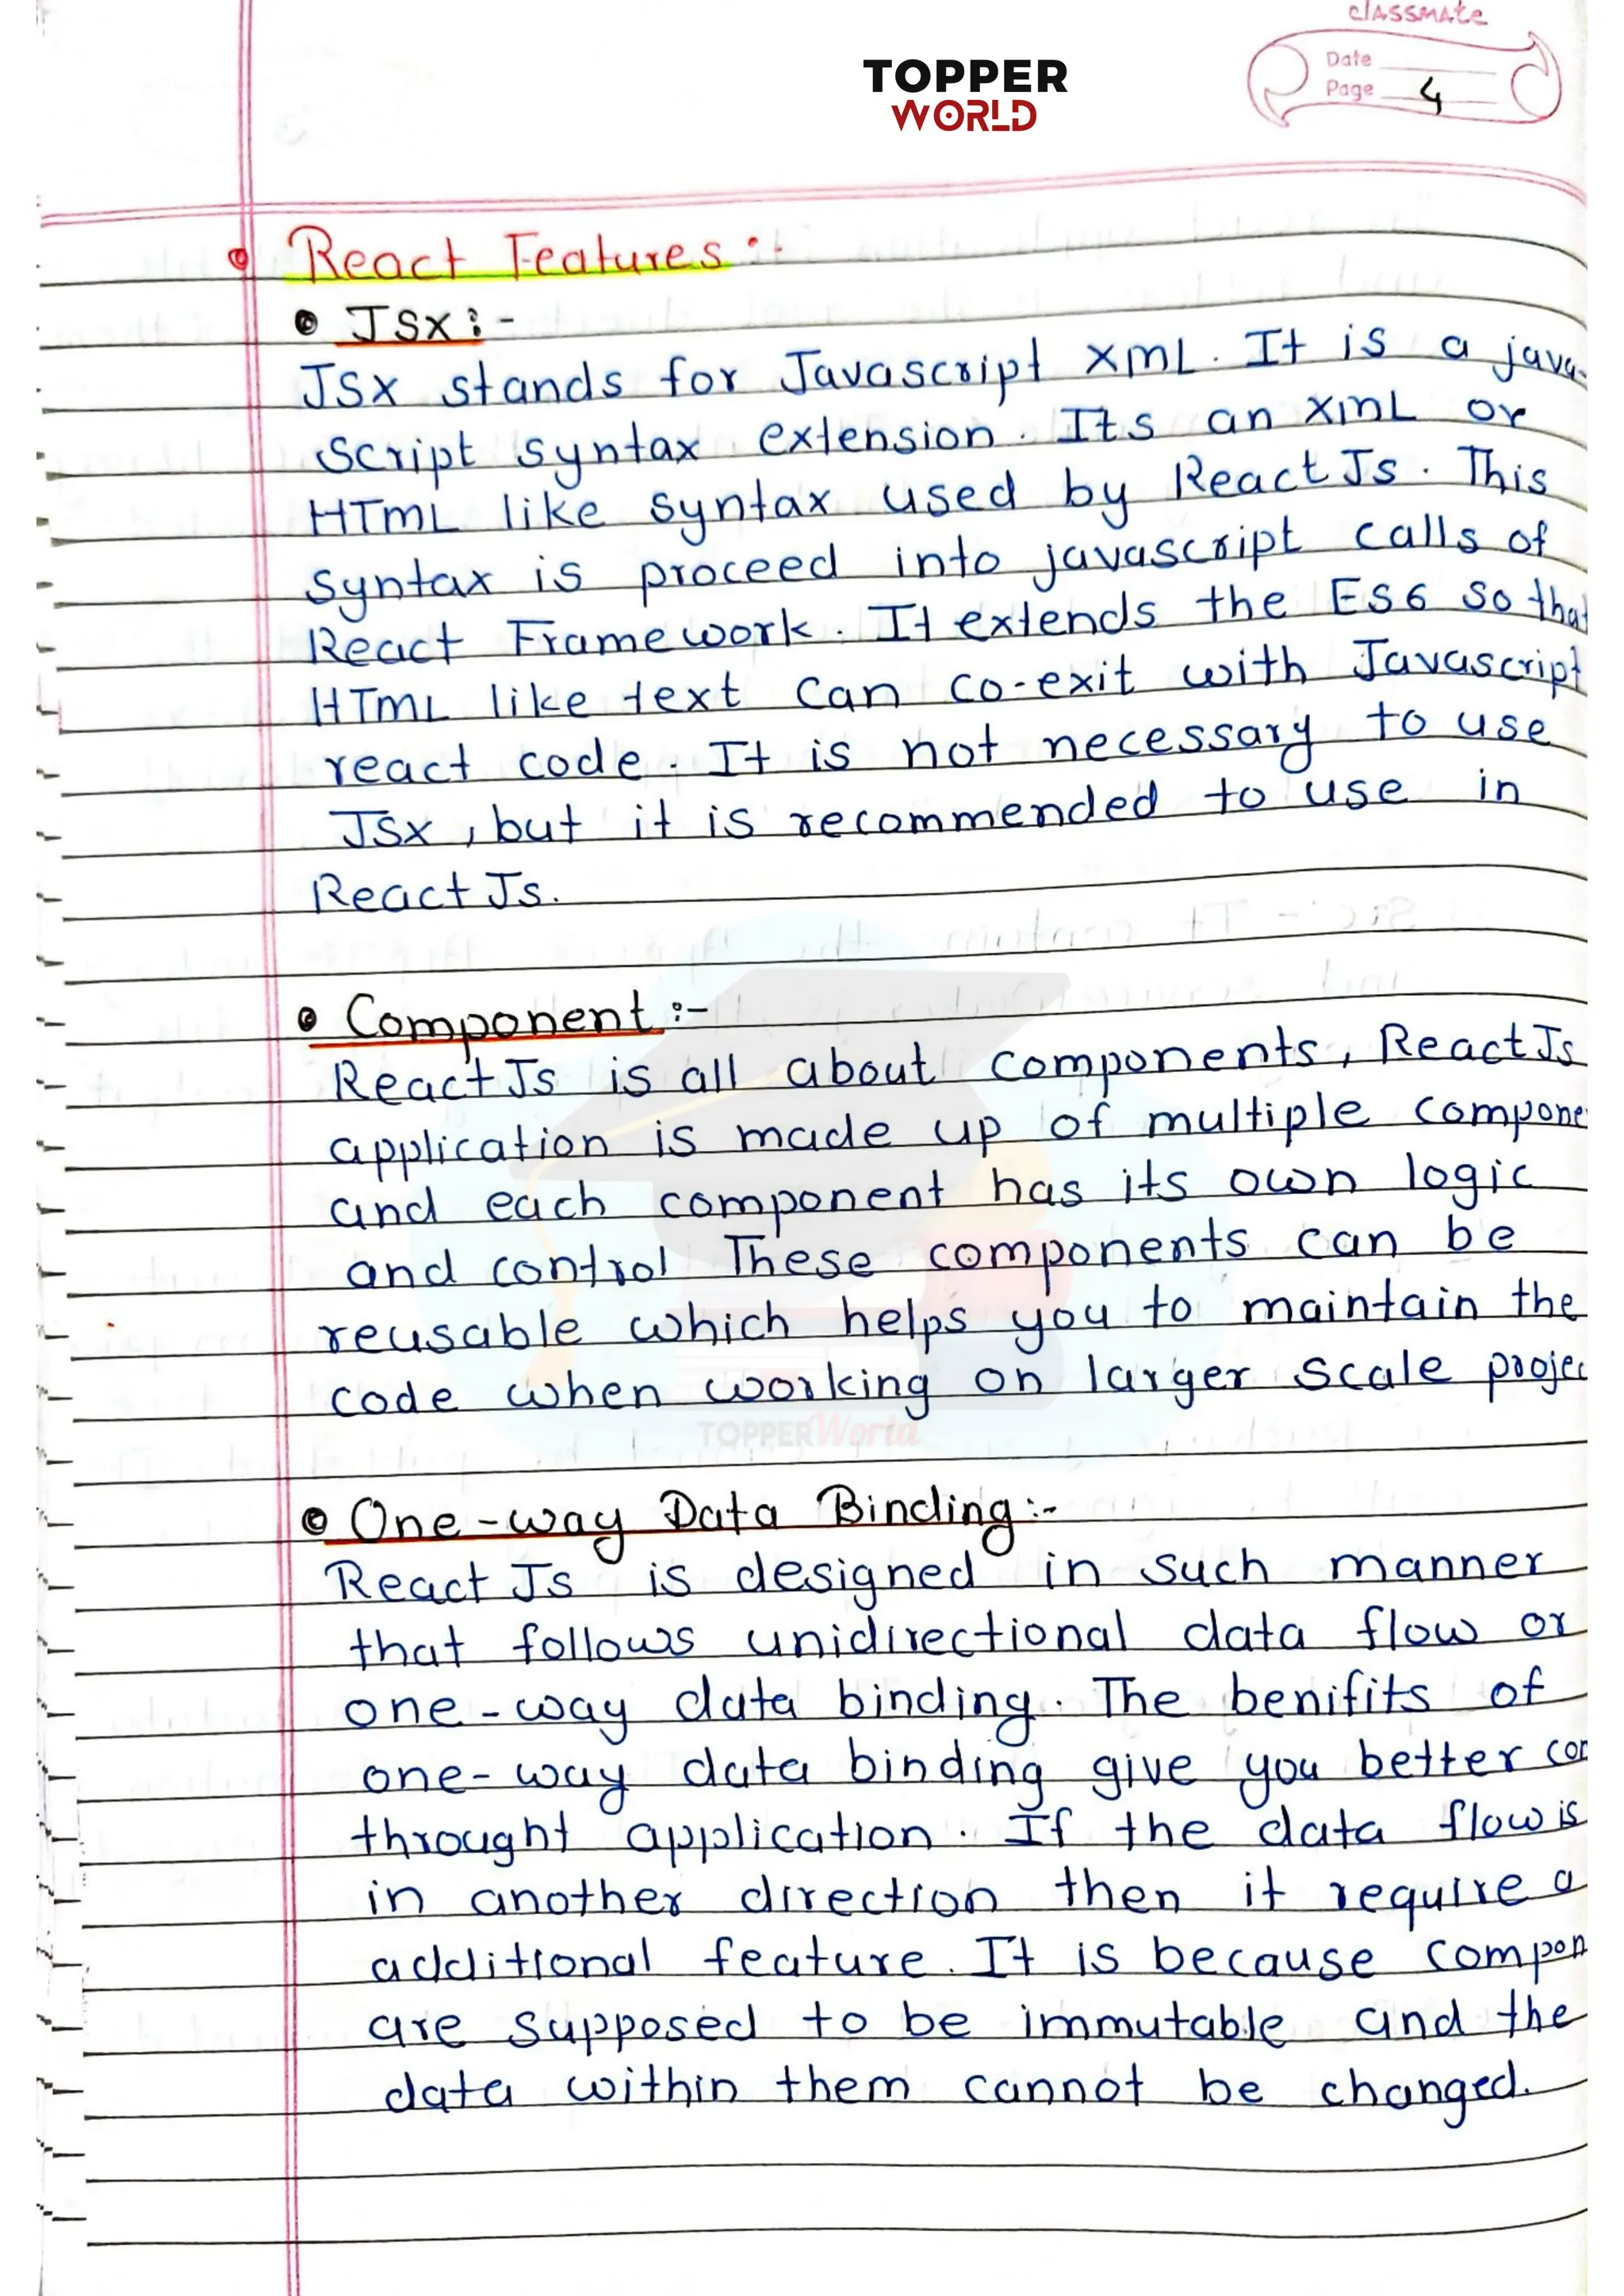 classmate
Date
Page 4
TOPPER
WORLD
React Features :-
JSX :-
JSX stands for Javascript XML. It is a java-
Script syntax extension. Its an XML or
HTML like syntax used by ReactJs. This
syntax is proceed into javascript calls of
React Framework. It extends the ES6 so that
HTML like text can co-exit with Javascript
react code. It is not necessary to use
JSX, but it is recommended to use in
ReactJs.
Component :-
ReactJs is all about components, ReactJs
application is made up of multiple compone
and each component has its own logic
and control These components can be
reusable which helps you to maintain the
code when working on larger scale projec
TOPPERWorld
One-way Data Binding :-
ReactJs is designed in such manner
that follows unidirectional data flow or
one-way data binding. The benifits of
one-way data binding give you better con
throught application. If the data flow is
in another direction then it require a
additional feature. It is because compon
are supposed to be immutable and the
data within them cannot be changed.